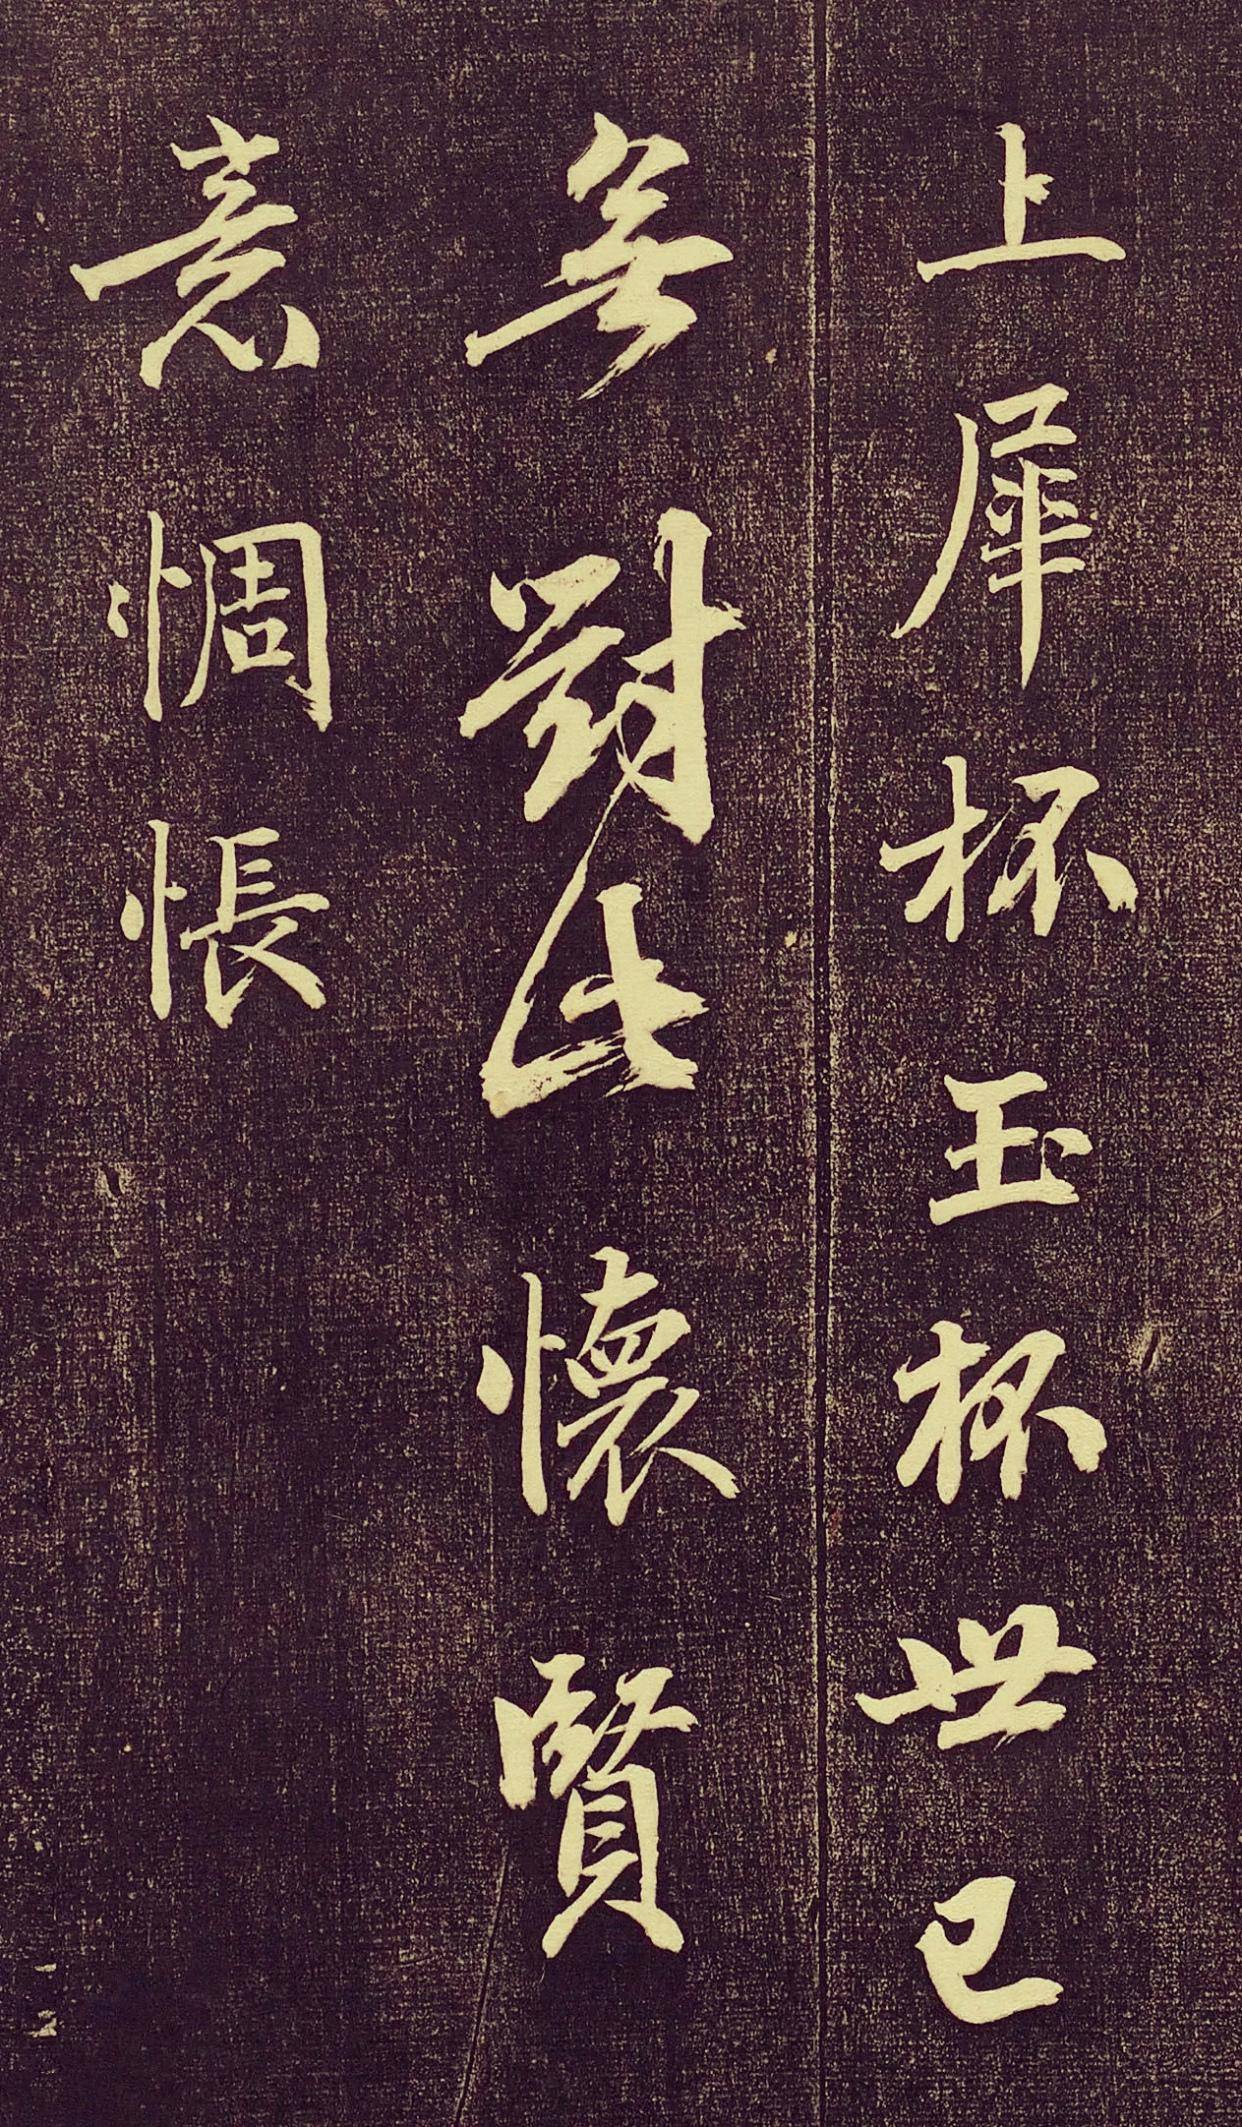 上犀杯玉杯世已
無對此懷賢
意惆悵